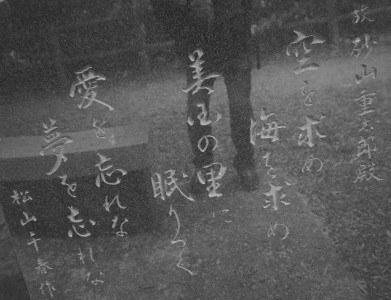 故 砂山重太郎殿
空を求め
海を求め
美玉の里に
眠りつく
愛を忘れな
夢を忘れな
松山千春作